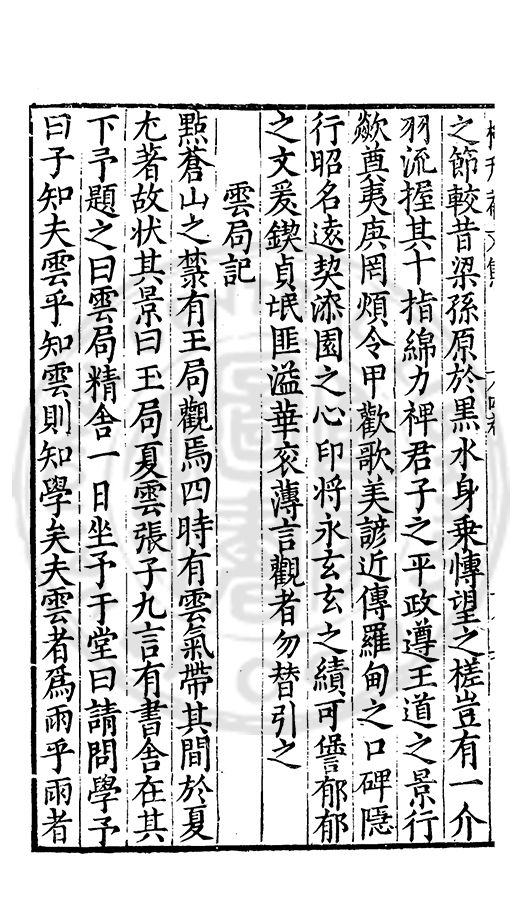 之節較昔梁孫原於黒水身乗慱望之槎豈有一介
羽流握其十指綿力裨君子之平政遵王道之景行
歟奠夷庚罔煩令甲歡歌美諺近傳羅甸之口碑隠
行昭名逺契漆園之心印将永玄玄之績可譽郁郁
之文爰鍥貞珉匪溢華衮薄言觀者勿替引之
雲局記
㸃蒼山之蘂有玉局觀焉四時有雲氣帶其間於夏
尤著故状其景曰玉局夏雲張子九言有書舎在其
下予題之曰雲局精舎一日坐予于堂曰請問學予
曰子知夫雲乎知雲則知學矣夫雲者爲雨乎雨者